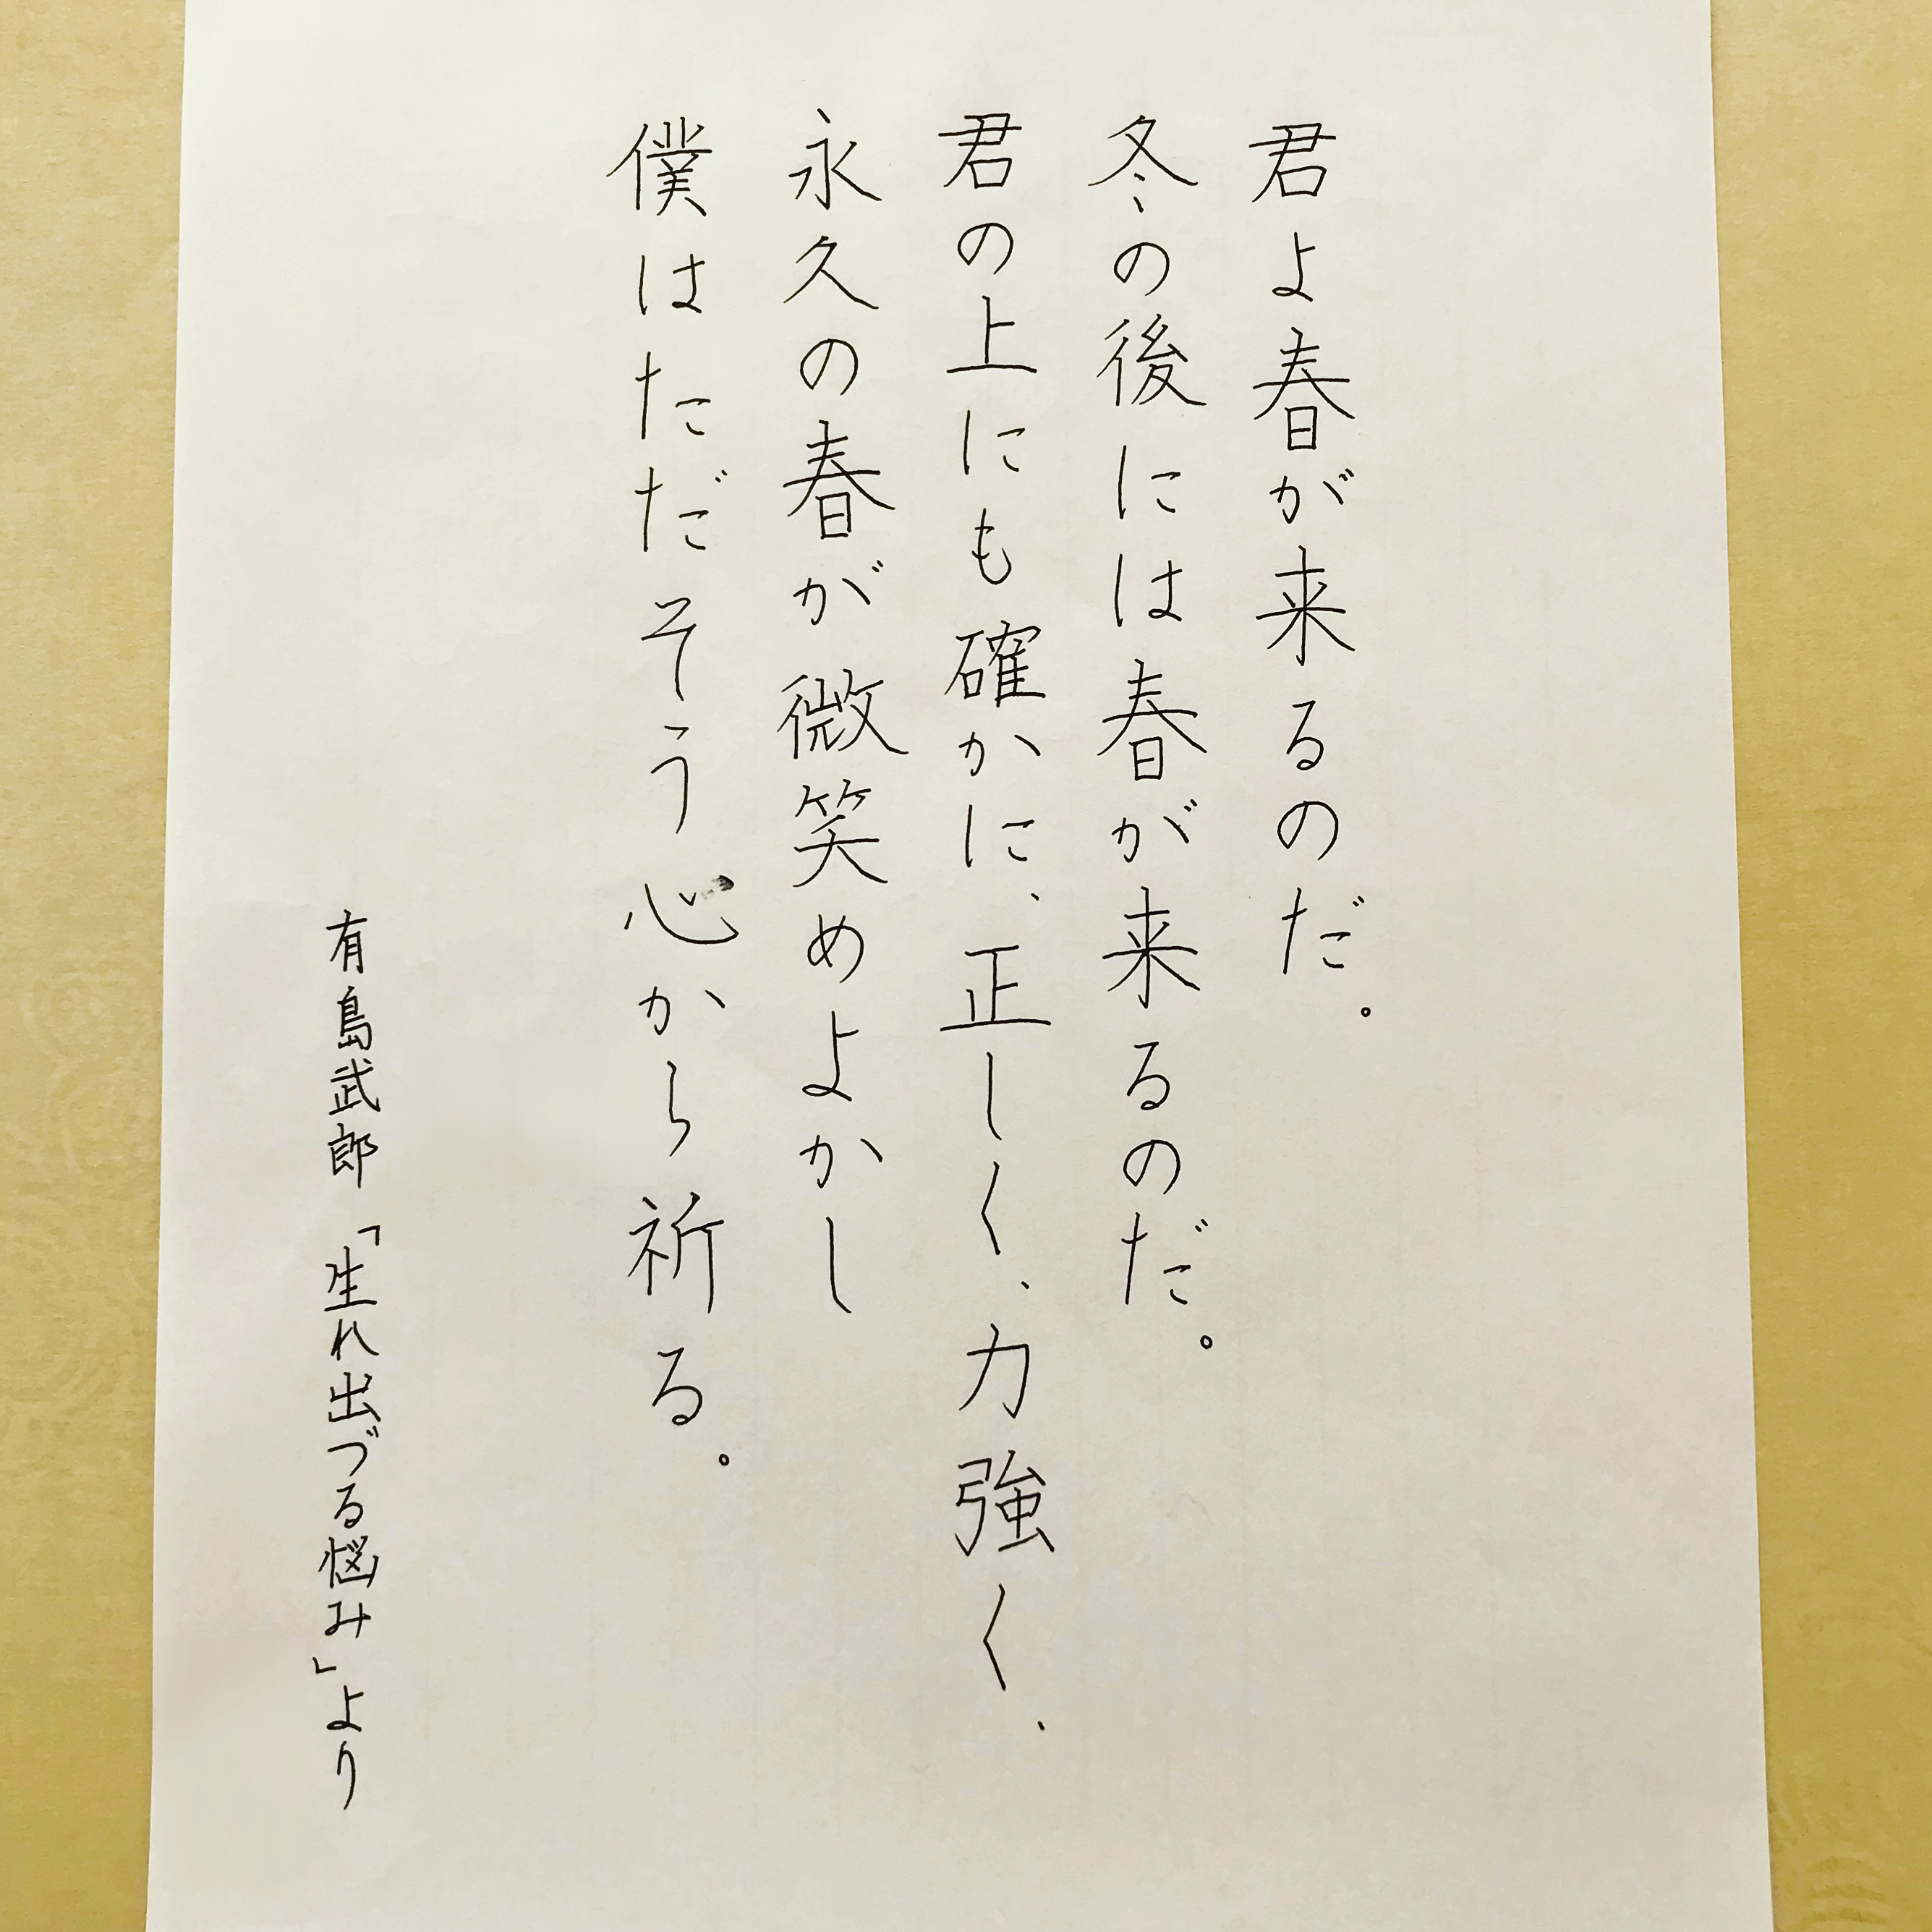 君よ春が来るのだ。
冬の後には春が来るのだ。
君の上にも確かに、正しく、力強く、
永久の春が微笑めよかし
僕はただそう心から祈る。
有島武郎「生れ出づる悩み」より